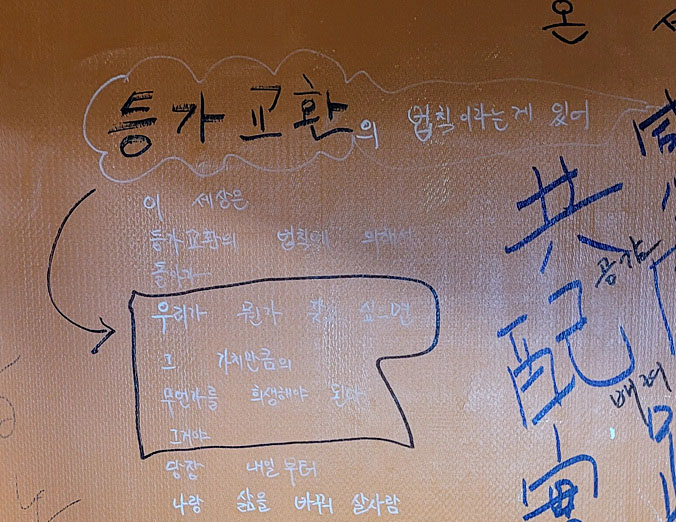 온
등가교환의 법칙이라는게 있어
이 세상은
등가교환의 법칙에 의해서
돌아가
우리가 뭔가 갖고 싶으면
그 가치만큼의
무언가를 희생해야 된다
그거야
당장 내일부터
나랑 삶을 바꿔 살사람
共
공감
配
배려